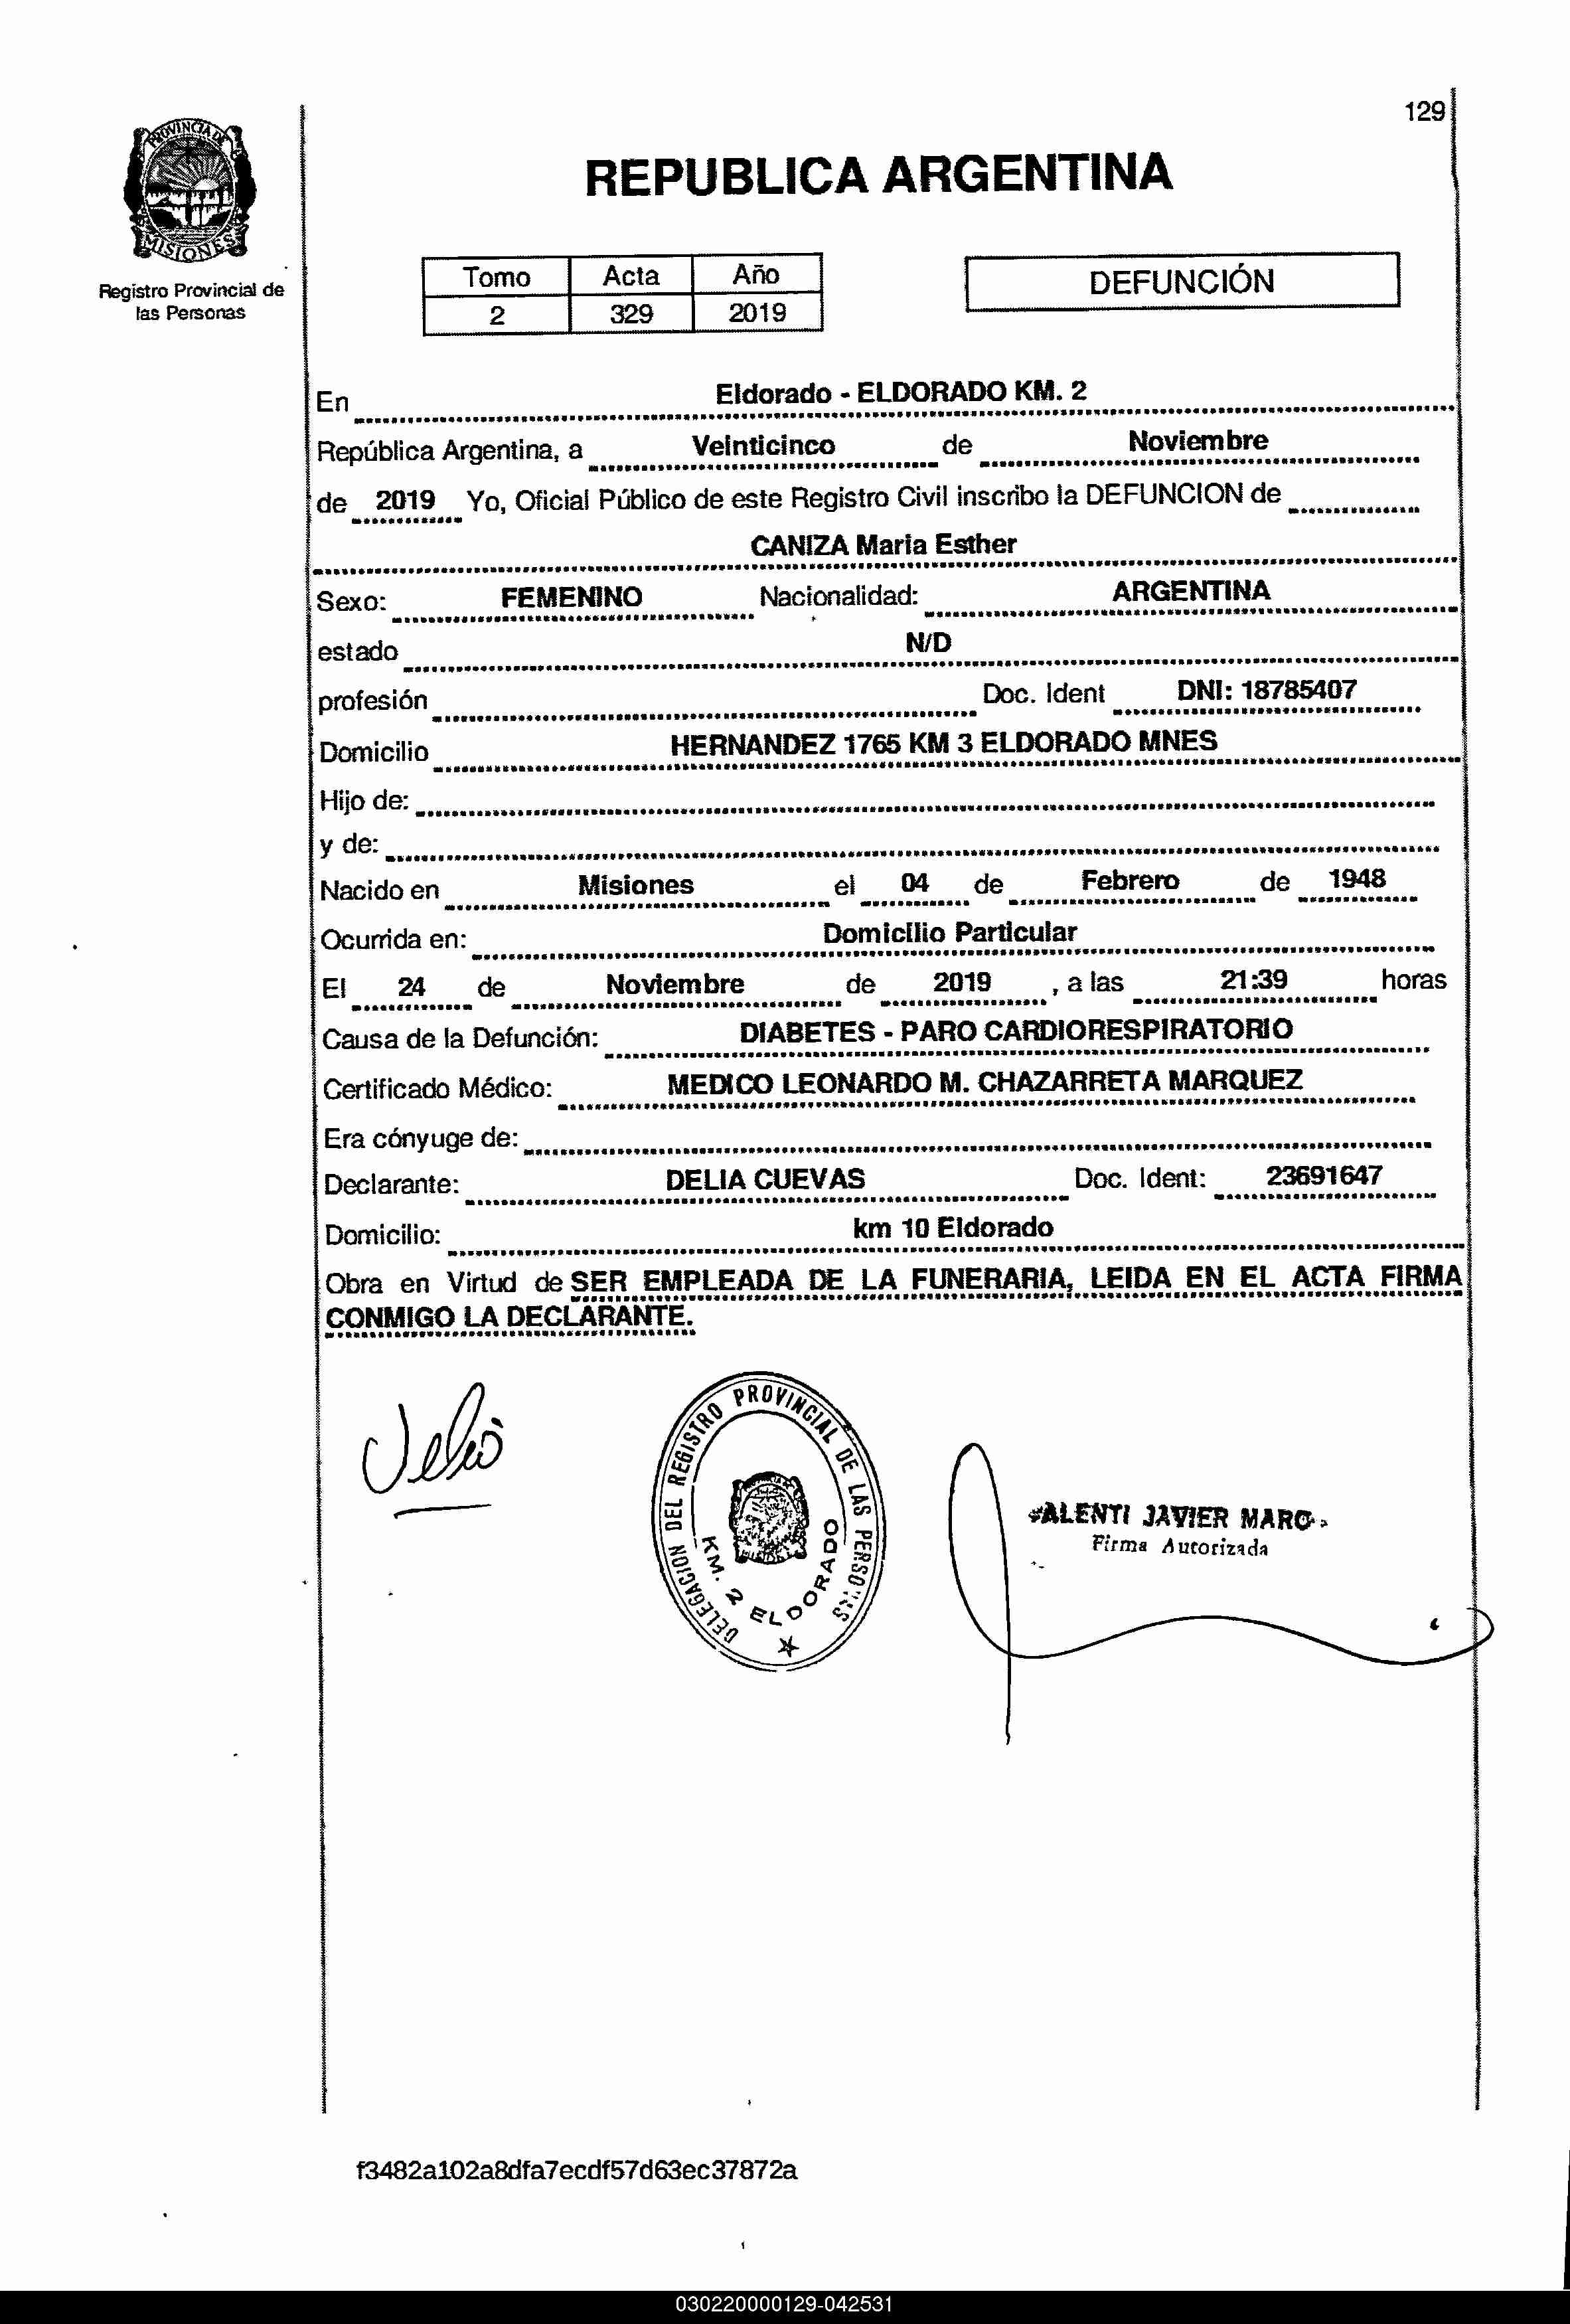 129
PROVINCIA DE
MISIONES
Registro Provincial de
las Personas
REPUBLICA ARGENTINA
Tomo Acta Año
2 329 2019
DEFUNCIÓN
En Eldorado - ELDORADO KM. 2
República Argentina, a Veinticinco de Noviembre
de 2019 Yo, Oficial Público de este Registro Civil inscribo la DEFUNCION de
CANIZA Maria Esther
Sexo: FEMENINO Nacionalidad: ARGENTINA
estado N/D
profesión Doc. Ident DNI: 18785407
Domicilio HERNANDEZ 1765 KM 3 ELDORADO MNES
Hijo de:
y de:
Nacido en Misiones el 04 de Febrero de 1948
Ocurrida en: Domicilio Particular
El 24 de Noviembre de 2019 , a las 21:39 horas
Causa de la Defunción: DIABETES - PARO CARDIORESPIRATORIO
Certificado Médico: MEDICO LEONARDO M. CHAZARRETA MARQUEZ
Era cónyuge de:
Declarante: DELIA CUEVAS Doc. Ident: 23691647
Domicilio: km 10 Eldorado
Obra en Virtud de SER EMPLEADA DE LA FUNERARIA, LEIDA EN EL ACTA FIRMA
CONMIGO LA DECLARANTE.
DELEGACION DEL REGISTRO PROVINCIAL DE LAS PERSONAS
KM. 2 ELDORADO
JAVIER
Firma Autorizada
f3482a102a8dfa7ecdf57d63ec37872a
030220000129-042531